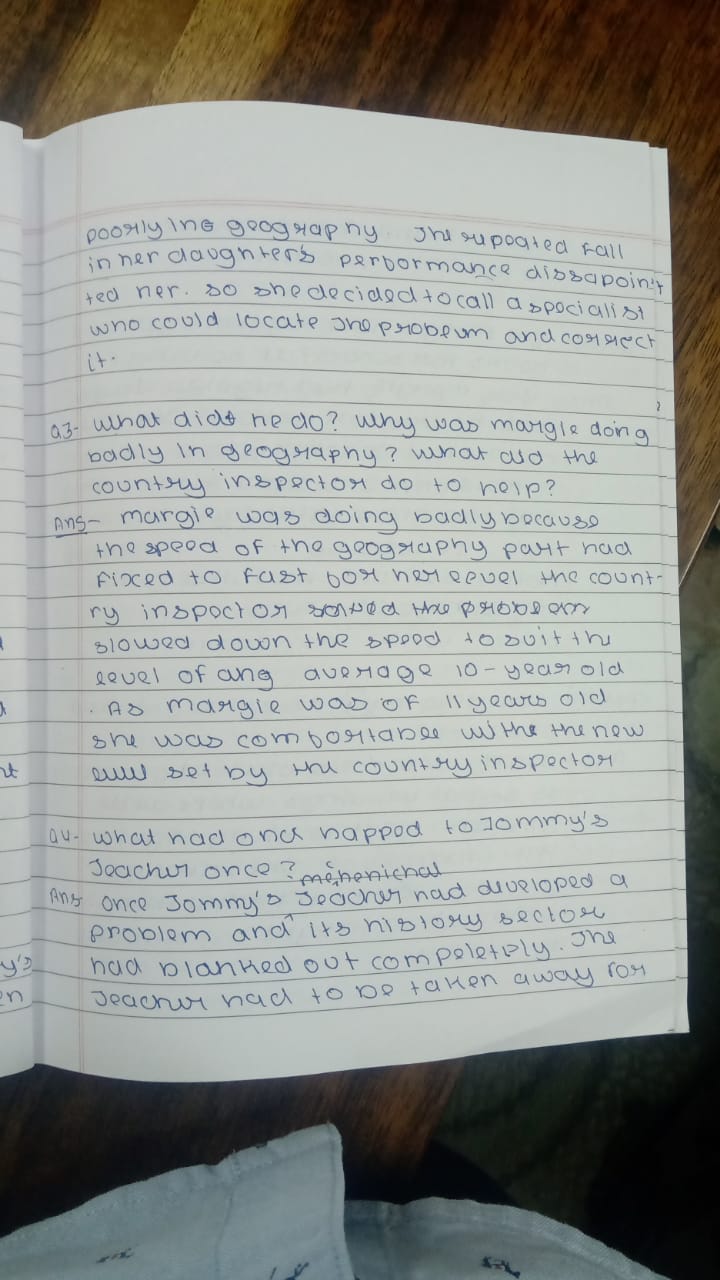 poorly ing geography. The repoated fall
in her daughter's performance dissapoin't
ted her. so she decided to call a specialist
who could locate The problem and correct
it.
?
Q3- What did he do? Why was margie doing
badly in geography? What did the
country inspector do to help?
Ans- margie was doing badly because
the speed of the geography part had
fixed to fast for her level the count-
ry inspector solved the problem
slowed down the speed to suit the
level of ang average 10-year old
. As margie was of 11 years old
she was comfortable withe the new
level set by the country inspector
nt
Q4- What had once happod to Tommy's
Teacher once?
mehenichal
Ans Once Tommy's Teacher had developed a
problem and its history sector
y's had blanked out completely. The
en Teacher had to be taken away for